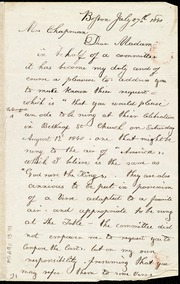 Boston July 27th 1840
Miss Chapman
Dear Madam
in behalf of a committee
it has become my duty and of
course a pleasure to address you
to make known their request
which is "that you would please
an ode to be sung at their celebration
in Belknap St Church on Saturday
August 1st 1840 - one that might be
sung to the air of "America,
which I believe is the same as
"God save the King". they are also
anxious to be put in possession
of a Verse adapted to a private
air - and appropriate to be sung
at the Table - the committee did
not empower me to request you to
compose the latter but on my own
responsibility, presuming that you
may refer them to some verse